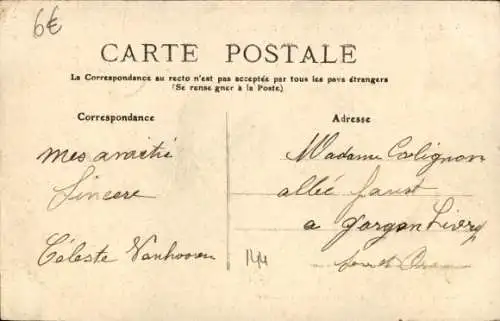 6€
CARTE POSTALE
La Correspondance au recto n'est pas acceptée par tous les pays étrangers
(Se renseigner à la Poste)
Correspondance
Adresse
mes amitié
Sincere
Céleste Vanhooren
Madame Colignon
allée faust
a gargan Livry
Seine et Oise
144